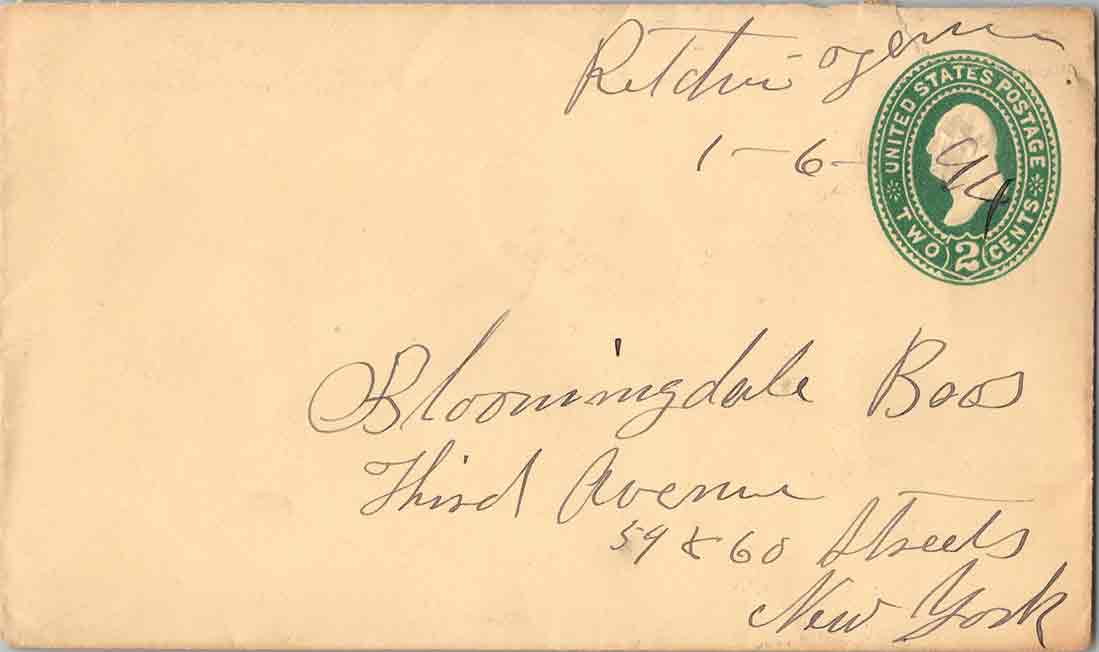 1-6-94
UNITED STATES POSTAGE
TWO 2 CENTS
Bloomingdale Bros
Third Avenue
59 & 60 Streets
New York